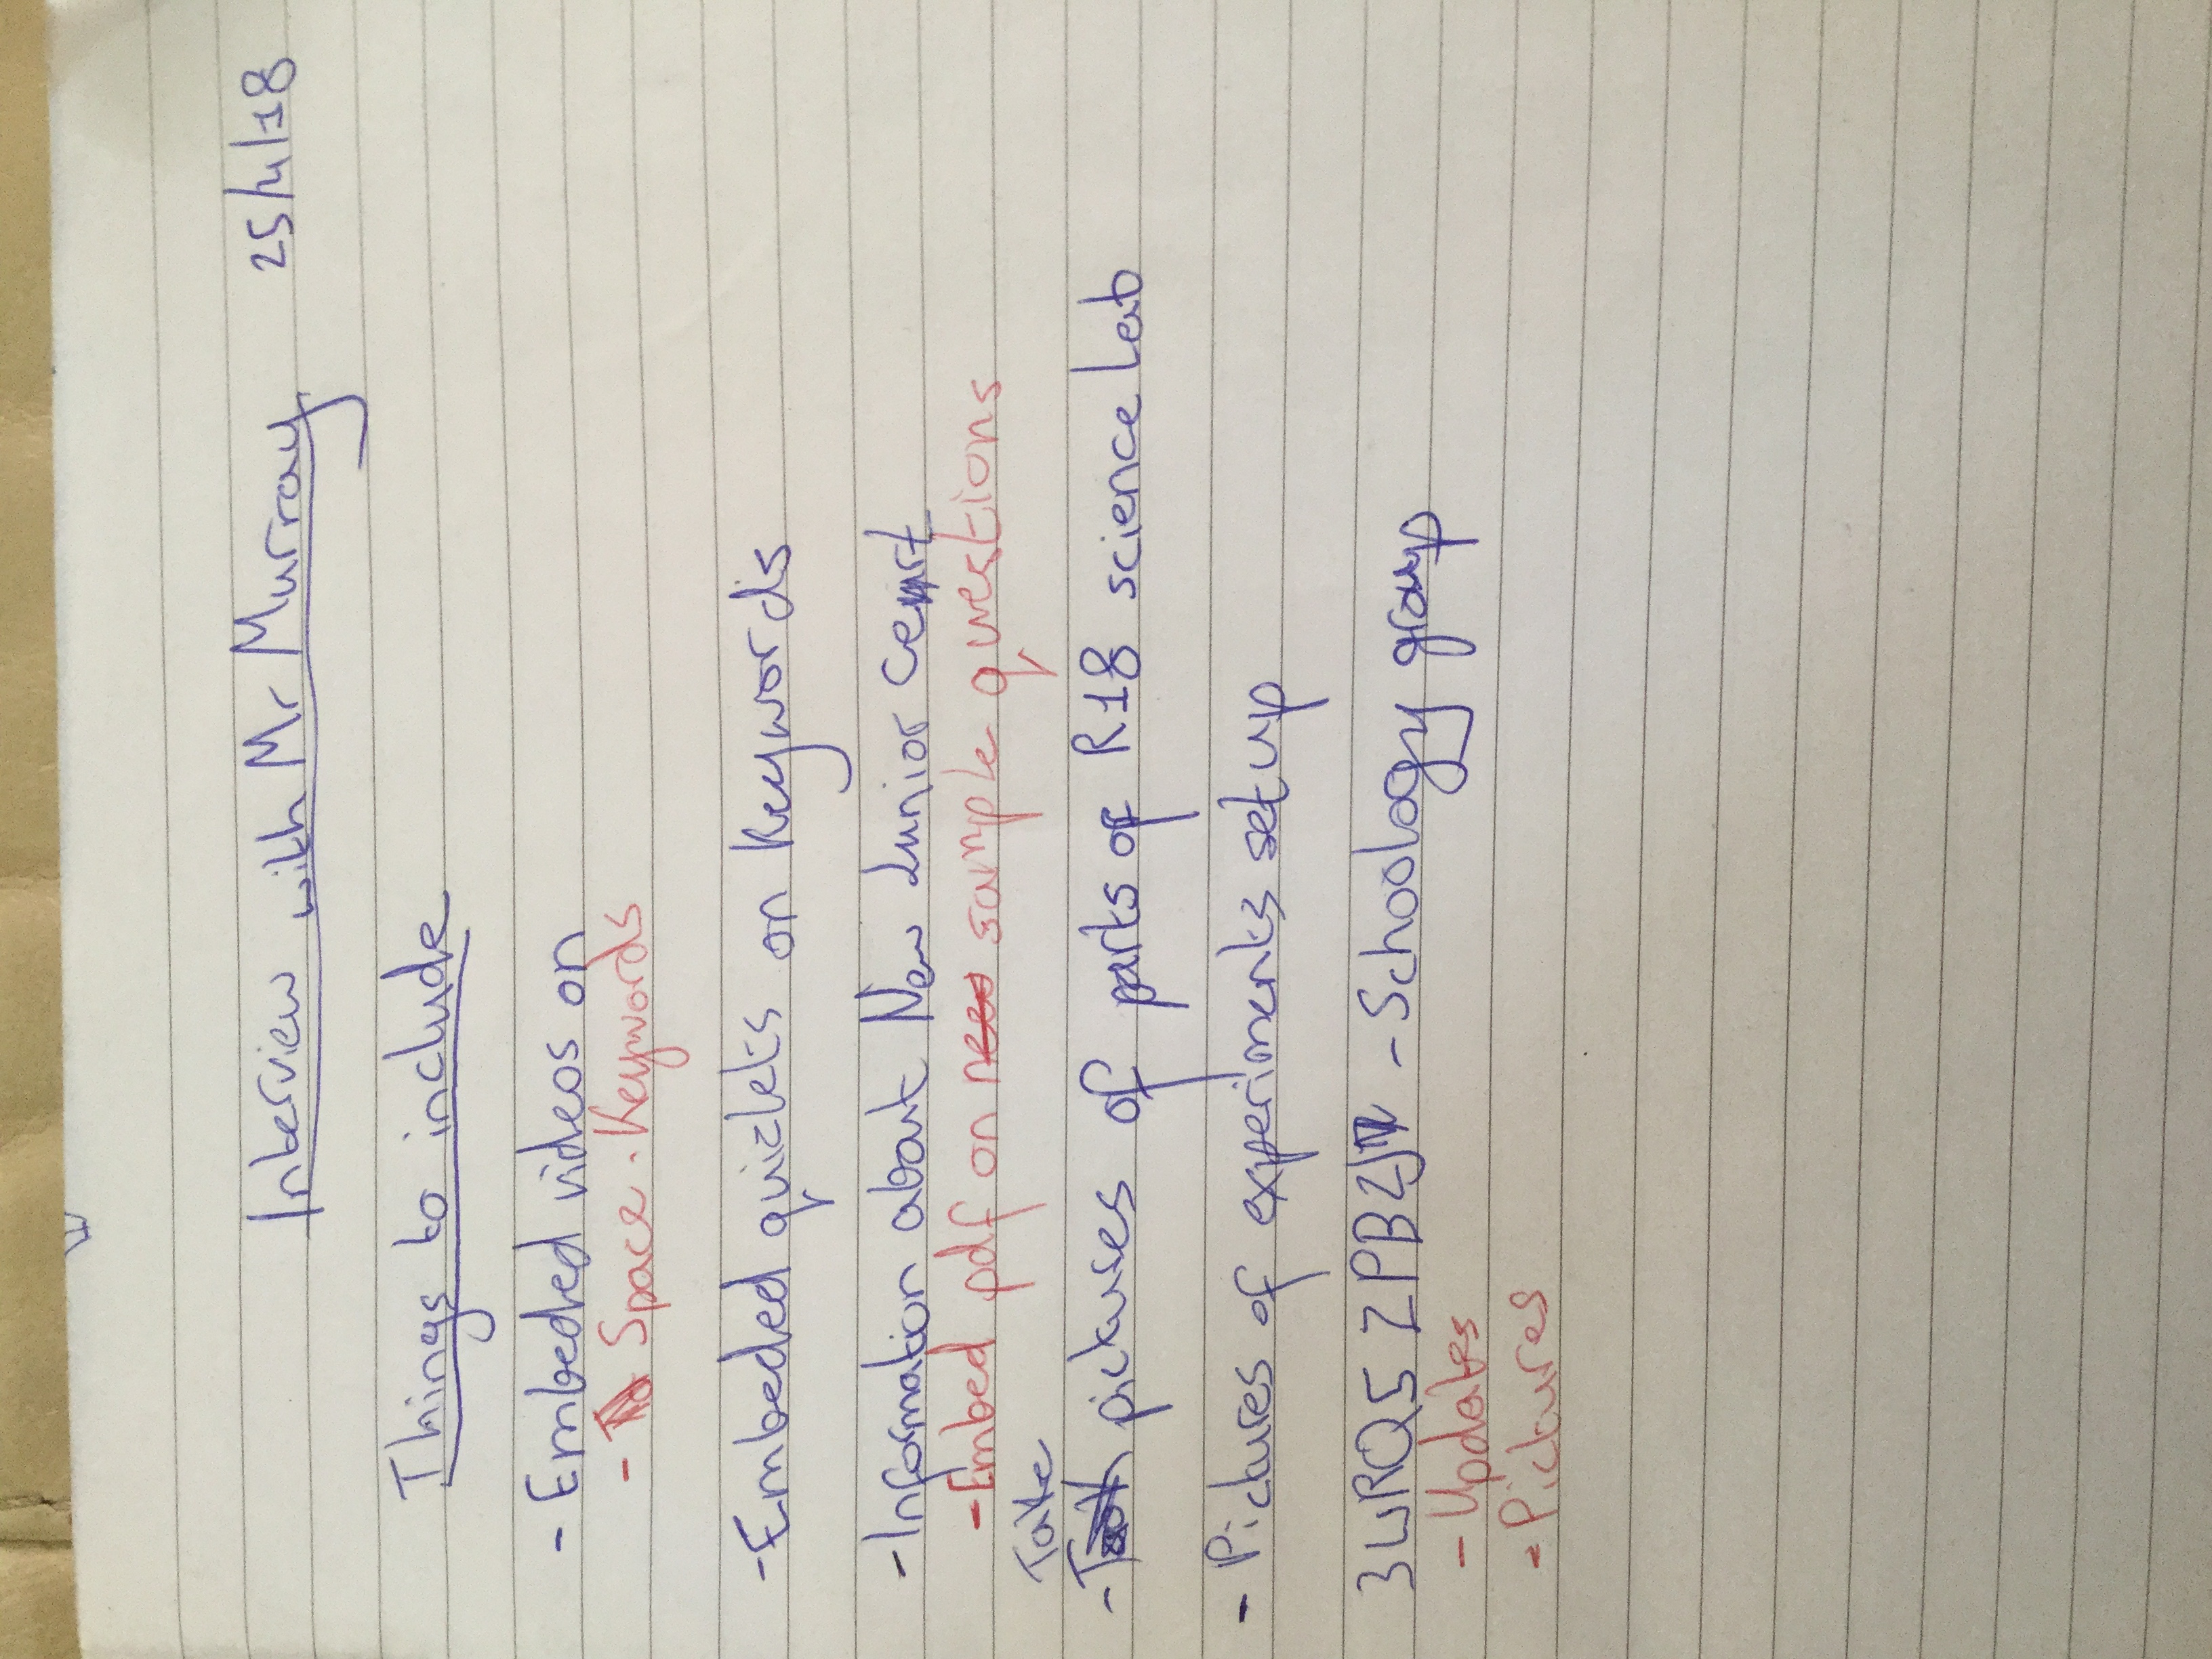 Interview with Mr Murray 25/4/18
Things to include
- Embeded videos on
- Space. Keywords
- Embeded quizlets on Keywords
- Information about New Junior Cert
- Embed pdf on sample questions
Take
- pictures of parts of R18 science Lab
- Pictures of experiments setup
- Schoology group
- Updates
- Pictures